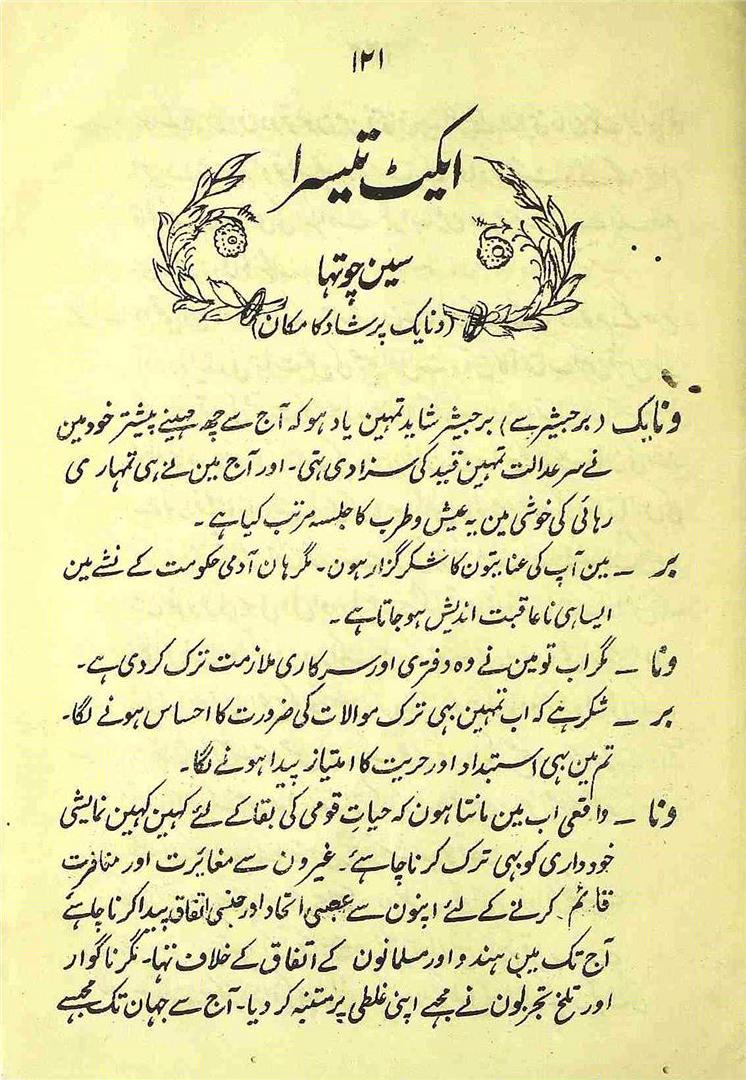 ۱۲۱
ایکٹ تیسرا
سین چوتھا
(ونایک پرشاد کا مکان)
ونایک (برجیشر سے) برجیشر شاید تمہین یاد ہو کہ آج سے چھ مہینے پیشتر خود مین
نے سر عدالت تمہین قید کی سزا دی تہی۔ اور آج مین نے ہی تمہاری
رہائی کی خوشی مین یہ عیش و طرب کا جلسہ مرتب کیا ہے۔
بر ۔ مین آپ کی عنایتون کا شکر گزار ہون۔ مگر ہان آدمی حکومت کے نشے مین
ایسا ہی ناعاقبت اندیش ہو جاتا ہے۔
ونا ۔ مگر اب تو مین نے وہ دفتری اور سرکاری ملازمت ترک کر دی ہے۔
بر ۔ شکر ہے کہ اب تمہین بہی ترک موالات کی ضرورت کا احساس ہونے لگا۔
تم مین بہی استبداد اور حریت کا امتیاز پیدا ہونے لگا۔
ونا ۔ واقعی اب مین مانتا ہون کہ حیاتِ قومی کی بقا کے لئے کہین کہین نمایشی
خود داری کو بہی ترک کرنا چاہئے۔ غیرون سے مغائرت اور منافرت
قائم کرنے کے لئے اپنون سے عصبی اتحاد اور جنسی اتفاق پیدا کرنا چاہئے
آج تک مین ہندو اور مسلمانون کے اتفاق کے خلاف تہا۔ مگر ناگوار
اور تلخ تجربون نے مجہے اپنی غلطی پر متنبہ کر دیا۔ آج سے جہان تک مجہسے